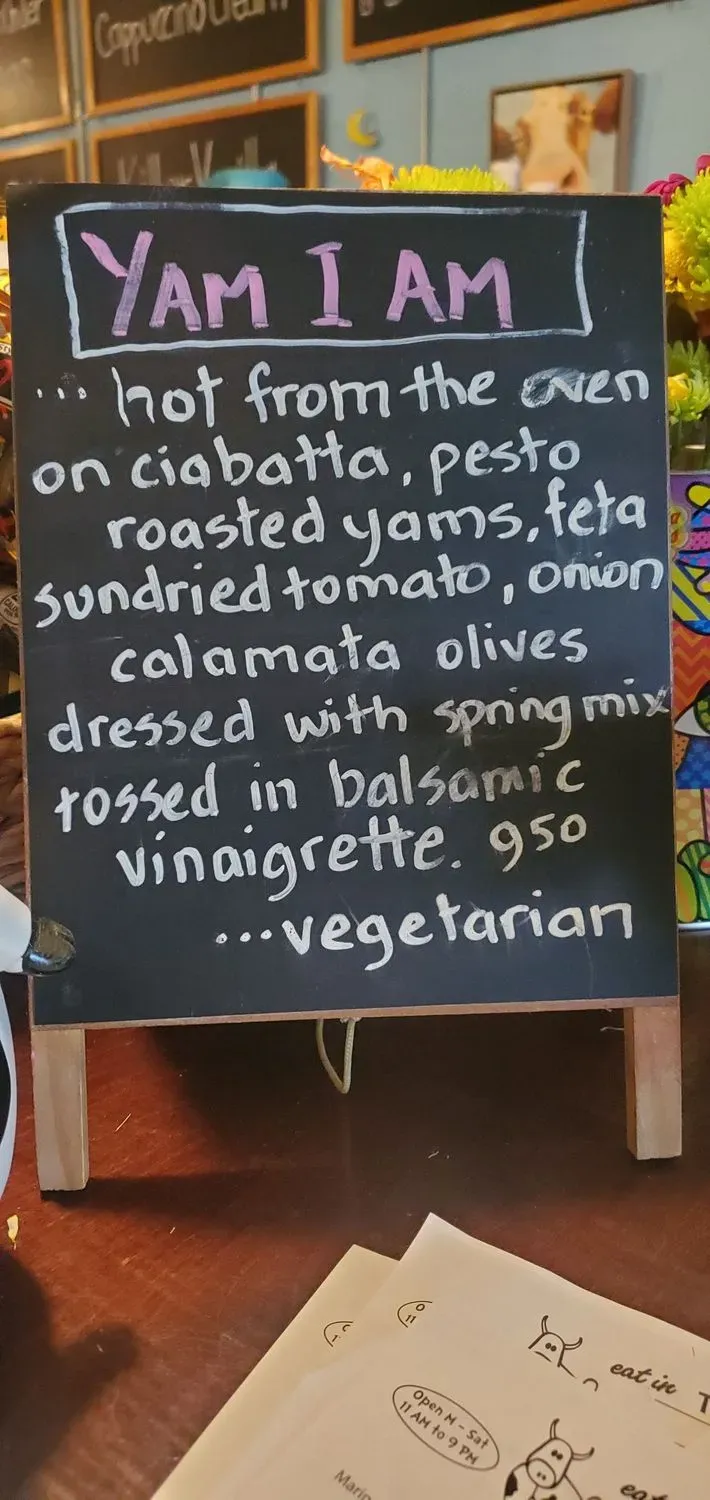 Cappuccino Cream
YAM I AM
... hot from the oven
on ciabatta, pesto
roasted yams, feta
sundried tomato, onion
calamata olives
dressed with spring mix
tossed in balsamic
vinaigrette. 950
...vegetarian
O
11
C
1
eat in T
Open M - Sat
11 AM to 9 PM
eat